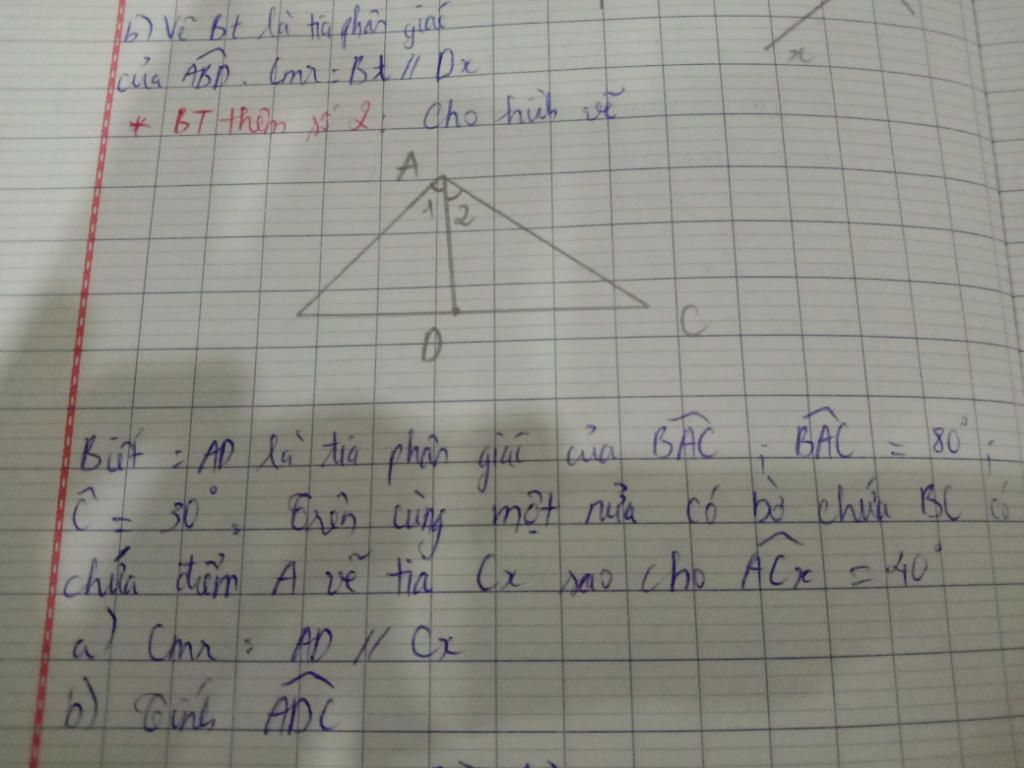 b) Vẽ Bt là tia phân giác
của ABD. Cmr = Bt // Dx
x
* BT thêm số 2. Cho hình vẽ
A
1 2
D
C
Biết : AD là tia phân giác của BAC ; BAC = 80° ;
Ĉ = 30°. Trên cùng một nửa có bờ chứa BC có
chứa điểm A vẽ tia Cx sao cho ACx = 40°
a) Cmr : AD // Cx
b) Tính ADC